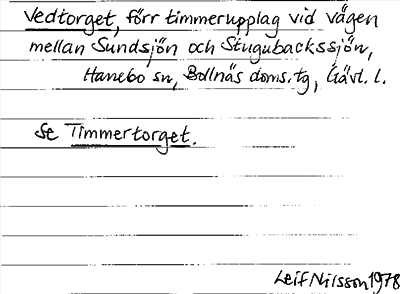 Vedtorget, förr timmerupplag vid vägen
mellan Sundsjön och Stugubackssjön,
Hanebo sn, Bollnäs doms.tg, Gävl. l.
Se Timmertorget.
Leif Nilsson 1978